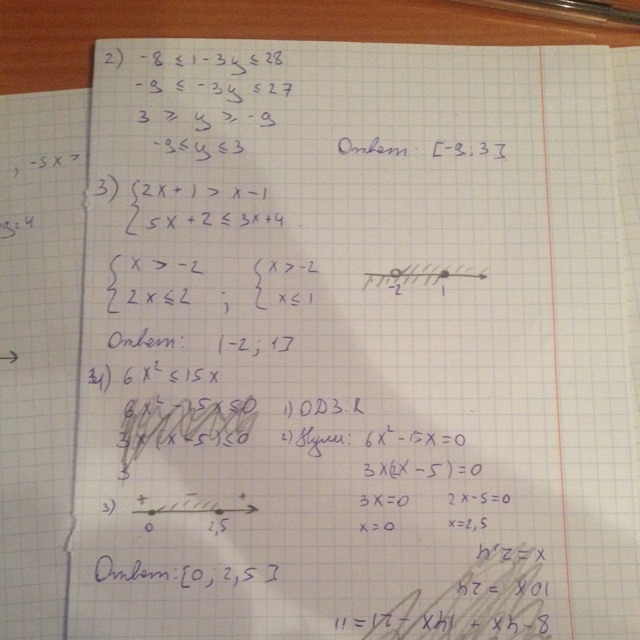 2) -8 ≤ 1-3y ≤ 28
-9 ≤ -3y ≤ 27
3 ≥ y ≥ -9
-9 ≤ y ≤ 3
Ответ: [-9, 3]
, -5x >
3) { 2x+1 > x-1
{ 5x+2 ≤ 3x+4
{ x > -2 { x > -2
{ 2x ≤ 2 ; { x ≤ 1
-2 1
Ответ: (-2; 1]
4) 6x² ≤ 15x
1) ОДЗ: R
2) Нули: 6x²-15x=0
3x(2x-5)=0
3
3x=0 2x-5=0
x=0 x=2,5
3) + - +
0 2,5
Ответ: [0; 2,5]
x=2,4
10x = 24
8-4x + 14x -21=11